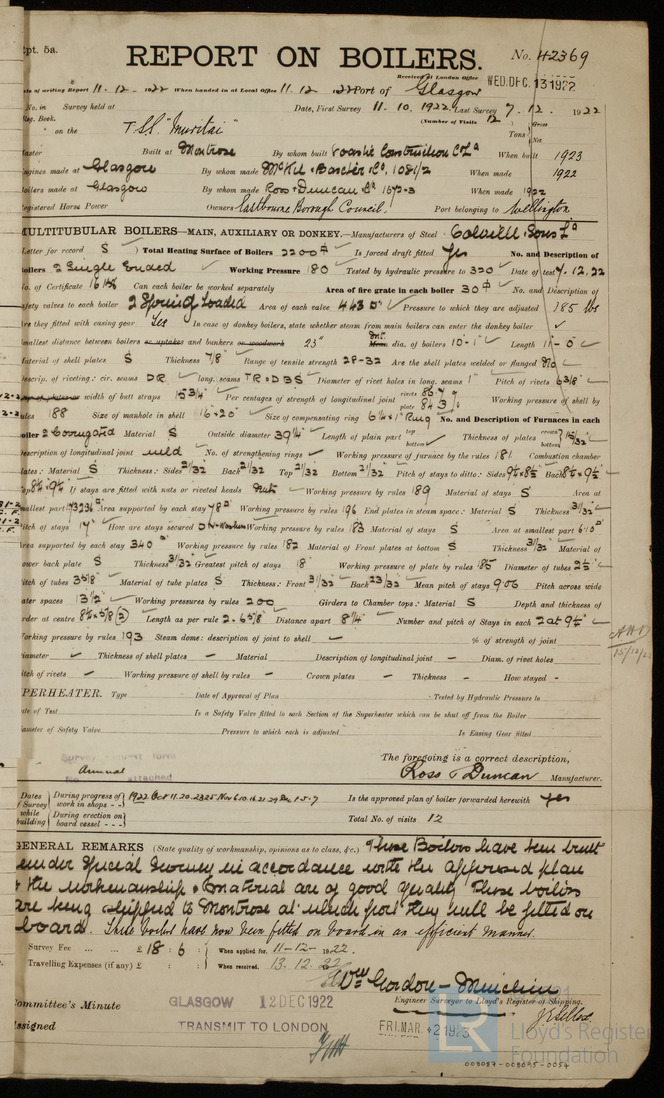 Rpt. 5a.
REPORT ON BOILERS.
No. 42369
Received at London Office WED. DEC. 13 1922
Date of writing Report 11-12-1922 When handed in at Local Office 11.12.1922 Port of Glasgow
No. in Survey held at Date, First Survey 11.10.1922 Last Survey 7.12.1922
Reg. Book. (Number of Visits 12
on the T.S.S. "Muritai" Tons Gross Net
Master Built at Montrose By whom built Coaster Construction Co Ld When built 1923
Engines made at Glasgow By whom made McKie & Baxter Ld, 1081/2 When made 1922
Boilers made at Glasgow By whom made Ross & Duncan Ld 1672-3 When made 1922
Registered Horse Power Owners Eastbourne Borough Council. Port belonging to Wellington
MULTITUBULAR BOILERS—MAIN, AUXILIARY OR DONKEY.—Manufacturers of Steel Colville & Sons Ld
Letter for record S Total Heating Surface of Boilers 2200 Is forced draft fitted Yes No. and Description of
Boilers 2 Single Ended Working Pressure 180 Tested by hydraulic pressure to 320 Date of test 7.12.22
No. of Certificate Can each boiler be worked separately Area of fire grate in each boiler 30 No. and Description of
safety valves to each boiler 2 Spring Loaded Area of each valve Pressure to which they are adjusted 185 lbs
Are they fitted with easing gear Yes In case of donkey boilers, state whether steam from main boilers can enter the donkey boiler
Smallest distance between boilers or uptakes and bunkers or woodwork 23" dia. of boilers 10-1" Length 11-0"
Material of shell plates S Thickness 7/8" Range of tensile strength 28-32 Are the shell plates welded or flanged No
Descrip. of riveting: cir. seams DR long. seams TR.DBS Diameter of rivet holes in long. seams 1" Pitch of rivets 6 3/8"
width of butt straps 15 3/4" Per centages of strength of longitudinal joint rivets plate 84.3 Working pressure of shell by
rules 188 Size of manhole in shell 16"x20" Size of compensating ring No. and Description of Furnaces in each
boiler 2 Corrugated Material S Outside diameter 39 1/4" Length of plain part top bottom Thickness of plates crown bottom 15/32"
Description of longitudinal joint weld No. of strengthening rings Working pressure of furnace by the rules 181 Combustion chamber
plates: Material S Thickness: Sides 21/32 Back 21/32 Top 21/32 Bottom 21/32 Pitch of stays to ditto: Sides Back
Top If stays are fitted with nuts or riveted heads Nuts Working pressure by rules 189 Material of stays S Area at
smallest part Area supported by each stay 78 Working pressure by rules 196 End plates in steam space: Material S Thickness 31/32
Pitch of stays 17" How are stays secured Working pressure by rules 183 Material of stays S Area at smallest part
Area supported by each stay 340 Working pressure by rules 182 Material of Front plates at bottom S Thickness 31/32 Material of
Lower back plate S Thickness 31/32 Greatest pitch of stays 18" Working pressure of plate by rules 185 Diameter of tubes 2 1/2"
Pitch of tubes 3 5/8" Material of tube plates S Thickness: Front 31/32 Back 23/32 Mean pitch of stays 9.06 Pitch across wide
water spaces 13 1/2" Working pressures by rules 200 Girders to Chamber tops: Material S Depth and thickness of
girder at centre Length as per rule Distance apart 8 1/4" Number and pitch of Stays in each 2 at 9 1/2"
Working pressure by rules 193 Steam dome: description of joint to shell % of strength of joint
Diameter Thickness of shell plates Material Description of longitudinal joint Diam. of rivet holes
Pitch of rivets Working pressure of shell by rules Crown plates Thickness How stayed
SUPERHEATER. Type Date of Approval of Plan Tested by Hydraulic Pressure to
Date of Test Is a Safety Valve fitted to each Section of the Superheater which can be shut off from the Boiler
Diameter of Safety Valve Pressure to which each is adjusted Is Easing Gear fitted
Annual attached
The foregoing is a correct description,
Ross & Duncan Manufacturer.
Dates of Survey while building During progress of work in shops - - 1922 Oct 11.20.23.25 Nov 6.10.16.21.29 Dec 1.5.7 Is the approved plan of boiler forwarded herewith Yes
During erection on board vessel - - - Total No. of visits 12
GENERAL REMARKS (State quality of workmanship, opinions as to class, &c.) These Boilers have been built
under Special Survey in accordance with the approved plan
& the workmanship & material are of good quality These boilers
are being shipped to Montrose at which port they will be fitted on
board. These boilers have now been fitted on board in an efficient manner.
Survey Fee ... ... £ 18 : 6 : When applied for, 11-12-1922.
Travelling Expenses (if any) £ : : When received, 13.12.22
Wm Gordon-Maclean
Engineer Surveyor to Lloyd's Register of Shipping.
Committee's Minute GLASGOW 12 DEC 1922
Assigned TRANSMIT TO LONDON
FRI. MAR. 2 1923
LR
Lloyd's Register
Foundation
008087-008095-0054